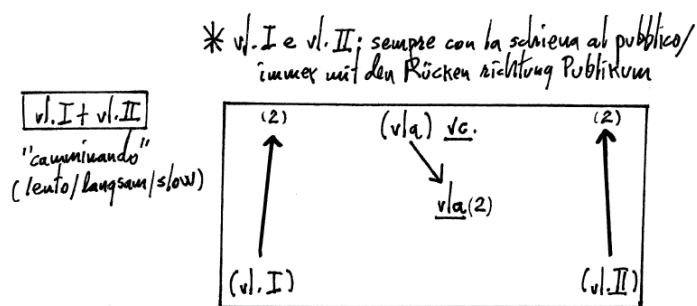 * vl. I e vl. II: sempre con la schiena al pubblico/
immer mit den Rücken richtung Publikum
vl. I + vl. II
"camminando"
(lento/langsam/slow)
(2) (vla) vc. (2)
vla (2)
(vl. I) (vl. II)